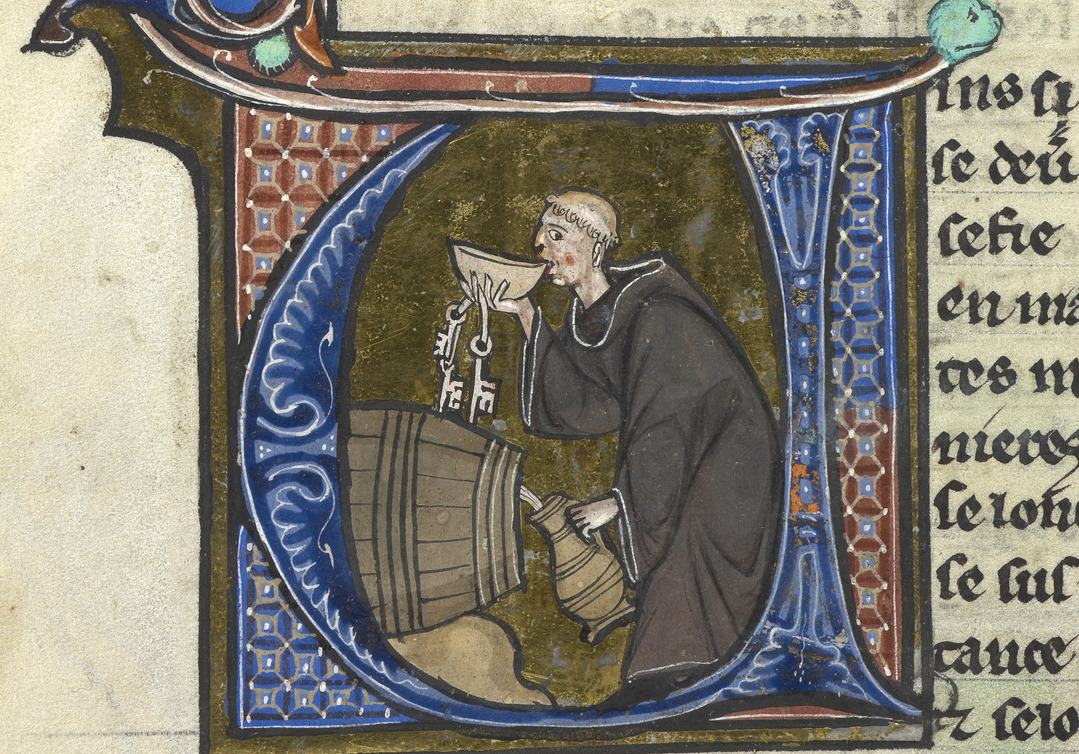 ins si
se deu
sefie
en ma
tes m
nieres
se lonc
se sus
tance
⁊ selo